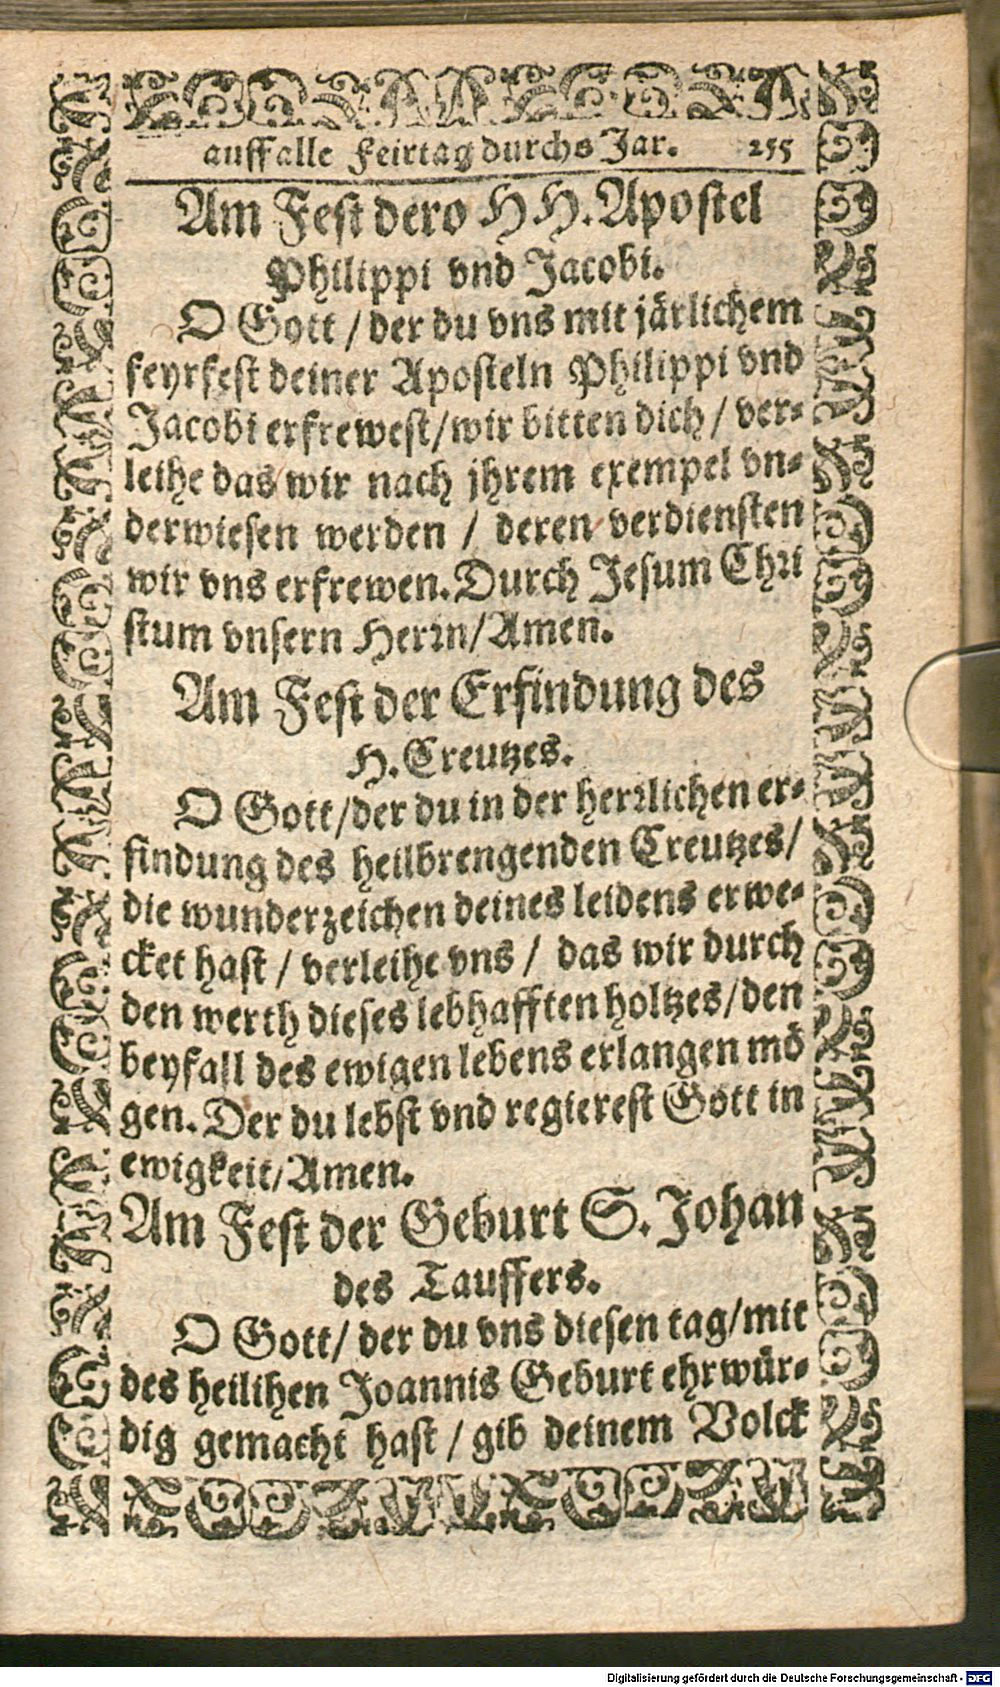 auff alle Feirtag durchs Jar. 255
Am Fest dero HH. Apostel
Philippi vnd Jacobi.
O Gott / der du vns mit järlichem
feyrfest deiner Aposteln Philippi vnd
Jacobi erfrewest/wir bitten dich / ver-
leihe das wir nach jhrem exempel vn-
derwiesen werden / deren verdiensten
wir vns erfrewen. Durch Jesum Chri
stum vnsern Herrn/Amen.
Am Fest der Erfindung des
H. Creutzes.
O Gott/der du in der herrlichen er-
findung des heilbrengenden Creutzes/
die wunderzeichen deines leidens erwe-
cket hast / verleihe vns / das wir durch
den werth dieses lebhafften holtzes/den
beyfall des ewigen lebens erlangen mö
gen. Der du lebst vnd regierest Gott in
ewigkeit/Amen.
Am Fest der Geburt S. Johan
des Tauffers.
O Gott/ der du vns diesen tag/mit
des heilihen Joannis Geburt ehrwür-
dig gemacht hast / gib deinem Volck
Digitalisierung gefördert durch die Deutsche Forschungsgemeinschaft - DFG